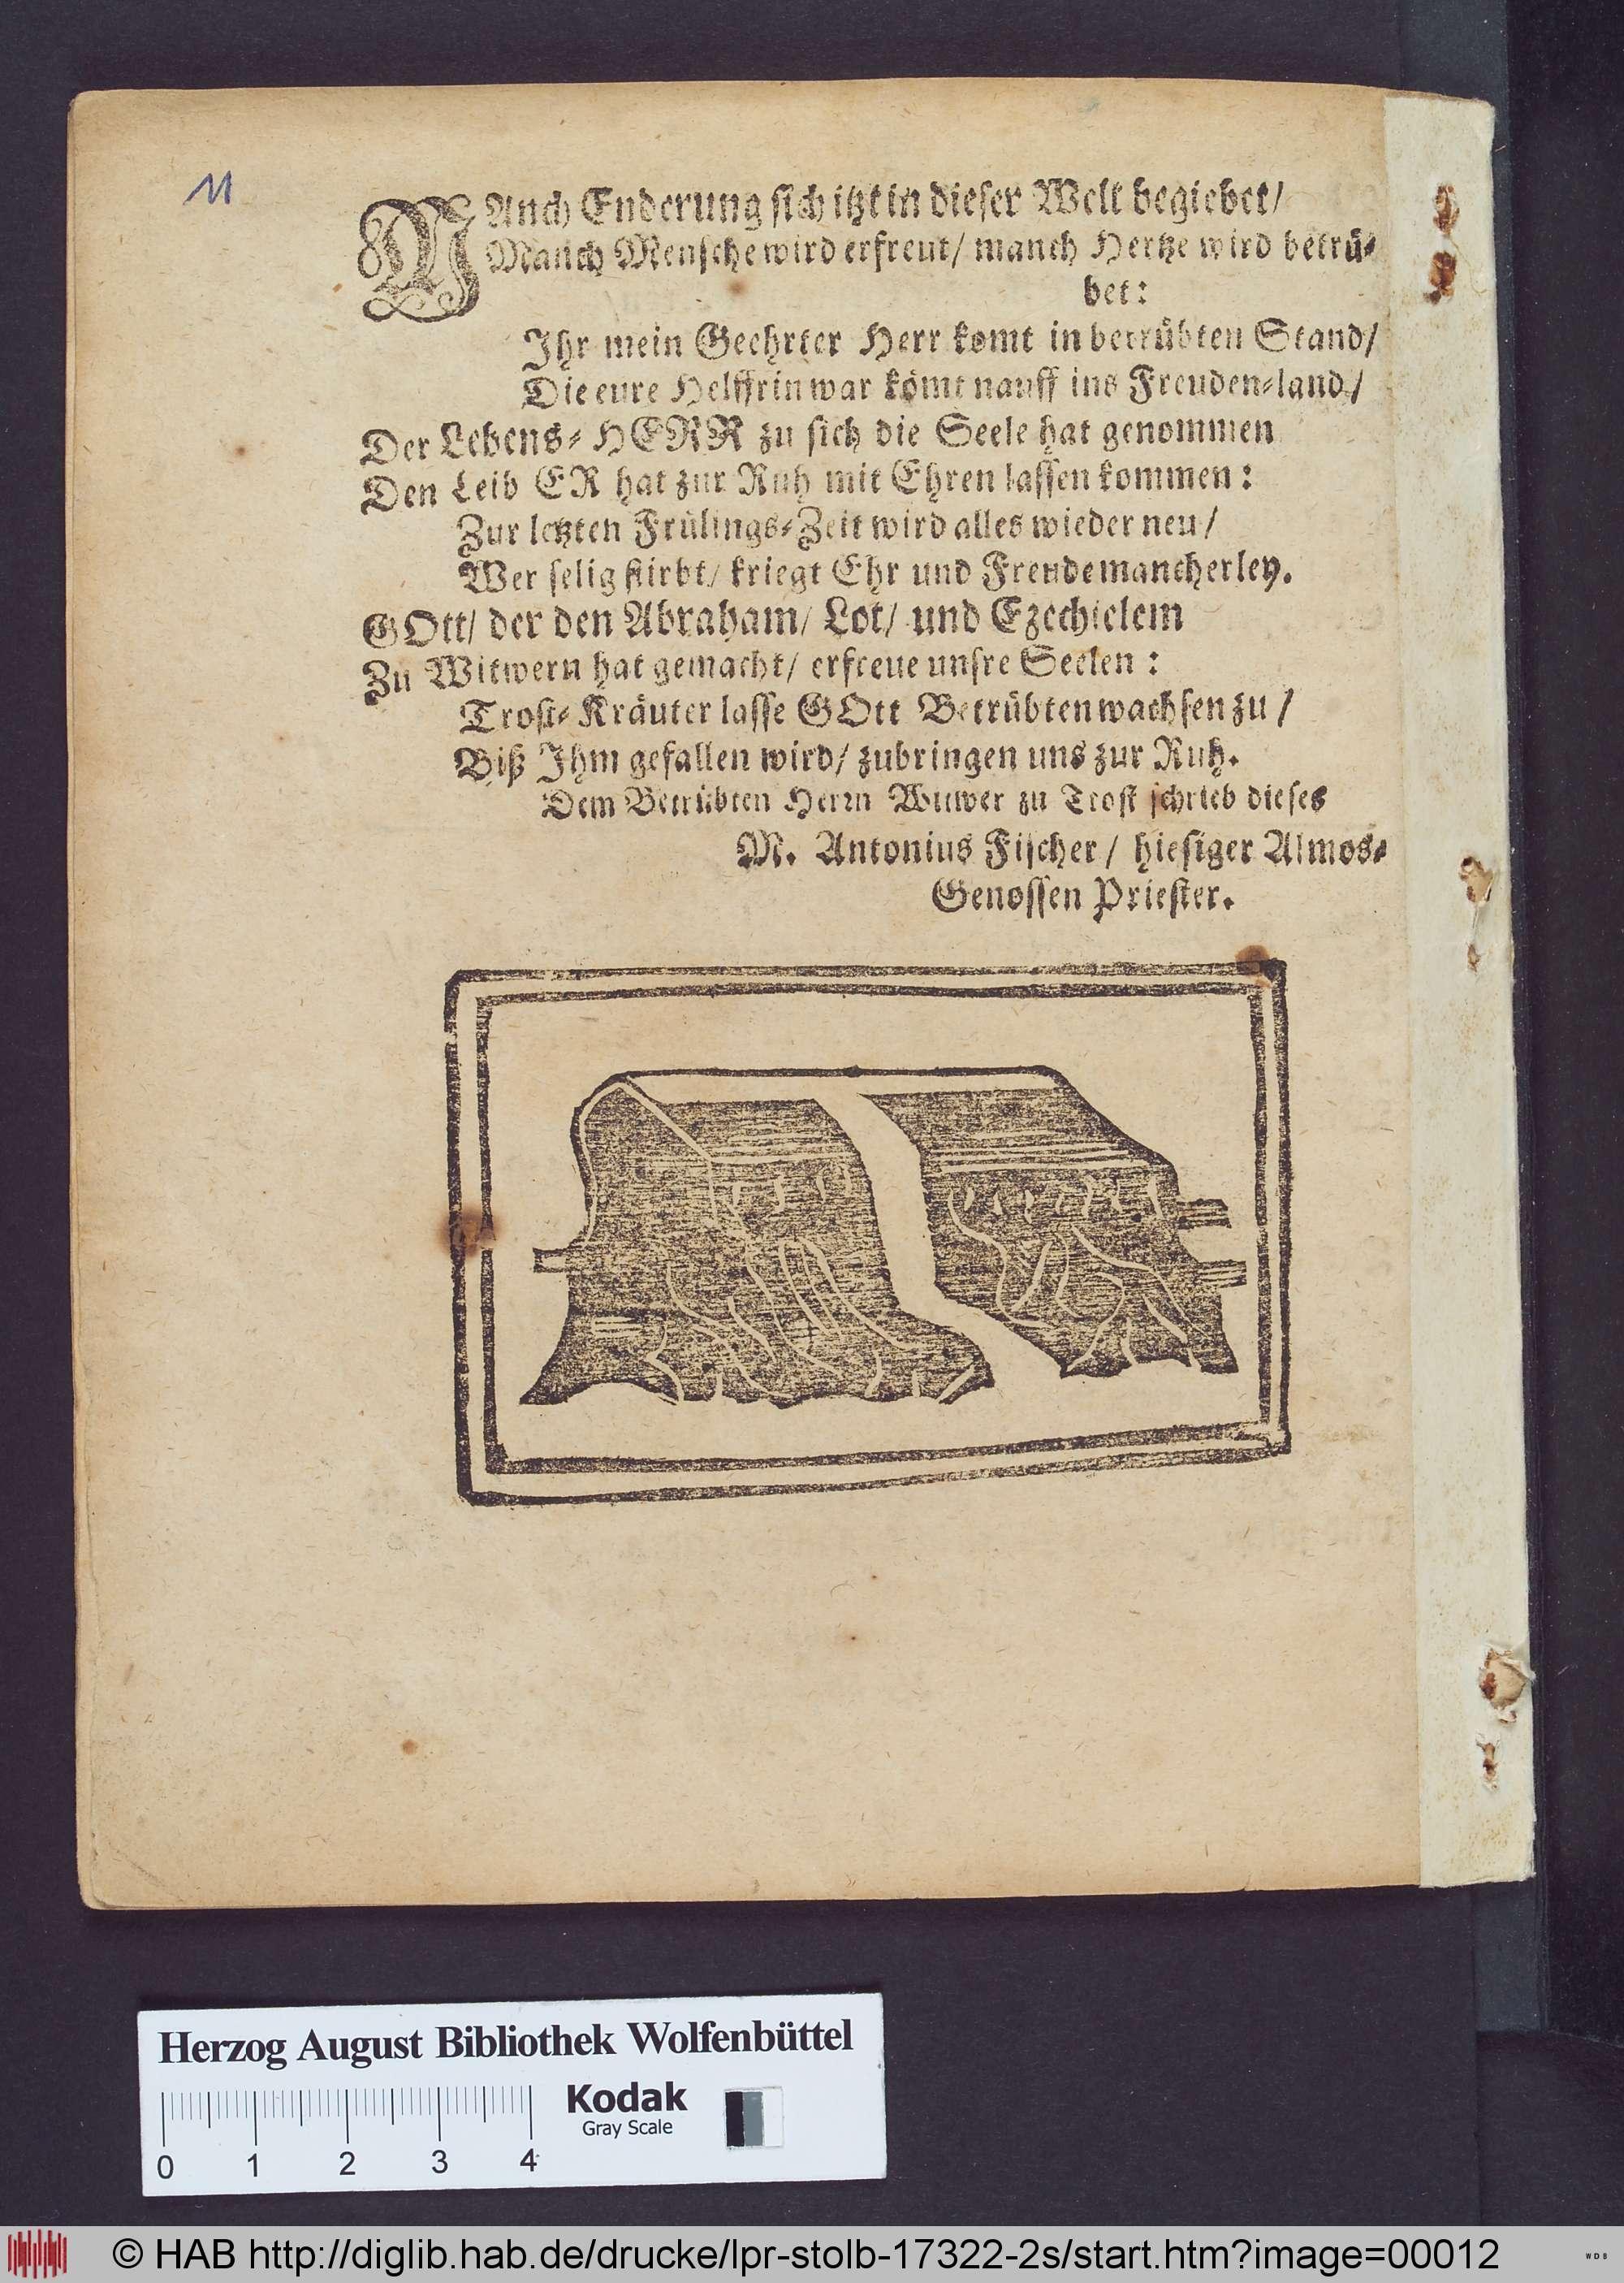 11
MAnch Enderung sich itzt in dieser Welt begiebet/
Manch Mensche wird erfreut/ manch Hertze wird betrü-
bet:
Ihr mein Geehrter Herr komt in betrübten Stand/
Die eure Helffrin war kömt nauff ins Freuden-land/
Der Lebens-HERR zu sich die Seele hat genommen
Den Leib ER hat zur Ruh mit Ehren lassen kommen:
Zur letzten Frülings-Zeit wird alles wieder neu/
Wer selig stirbt/ kriegt Ehr und Freude mancherley.
GOtt/ der den Abraham/ Lot/ und Ezechielem
Zu Witwern hat gemacht/ erfreue unsre Seelen:
Trost-Kräuter lasse GOtt Betrübten wachsen zu/
Biß Ihm gefallen wird/ zubringen uns zur Ruh.
Dem Betrübten Herrn Witwer zu Trost schrieb dieses
M. Antonius Fischer/ hiesiger Almos-
Genossen Priester.
Herzog August Bibliothek Wolfenbüttel
Kodak
Gray Scale
0 1 2 3 4
© HAB http://diglib.hab.de/drucke/lpr-stolb-17322-2s/start.htm?image=00012
WDB